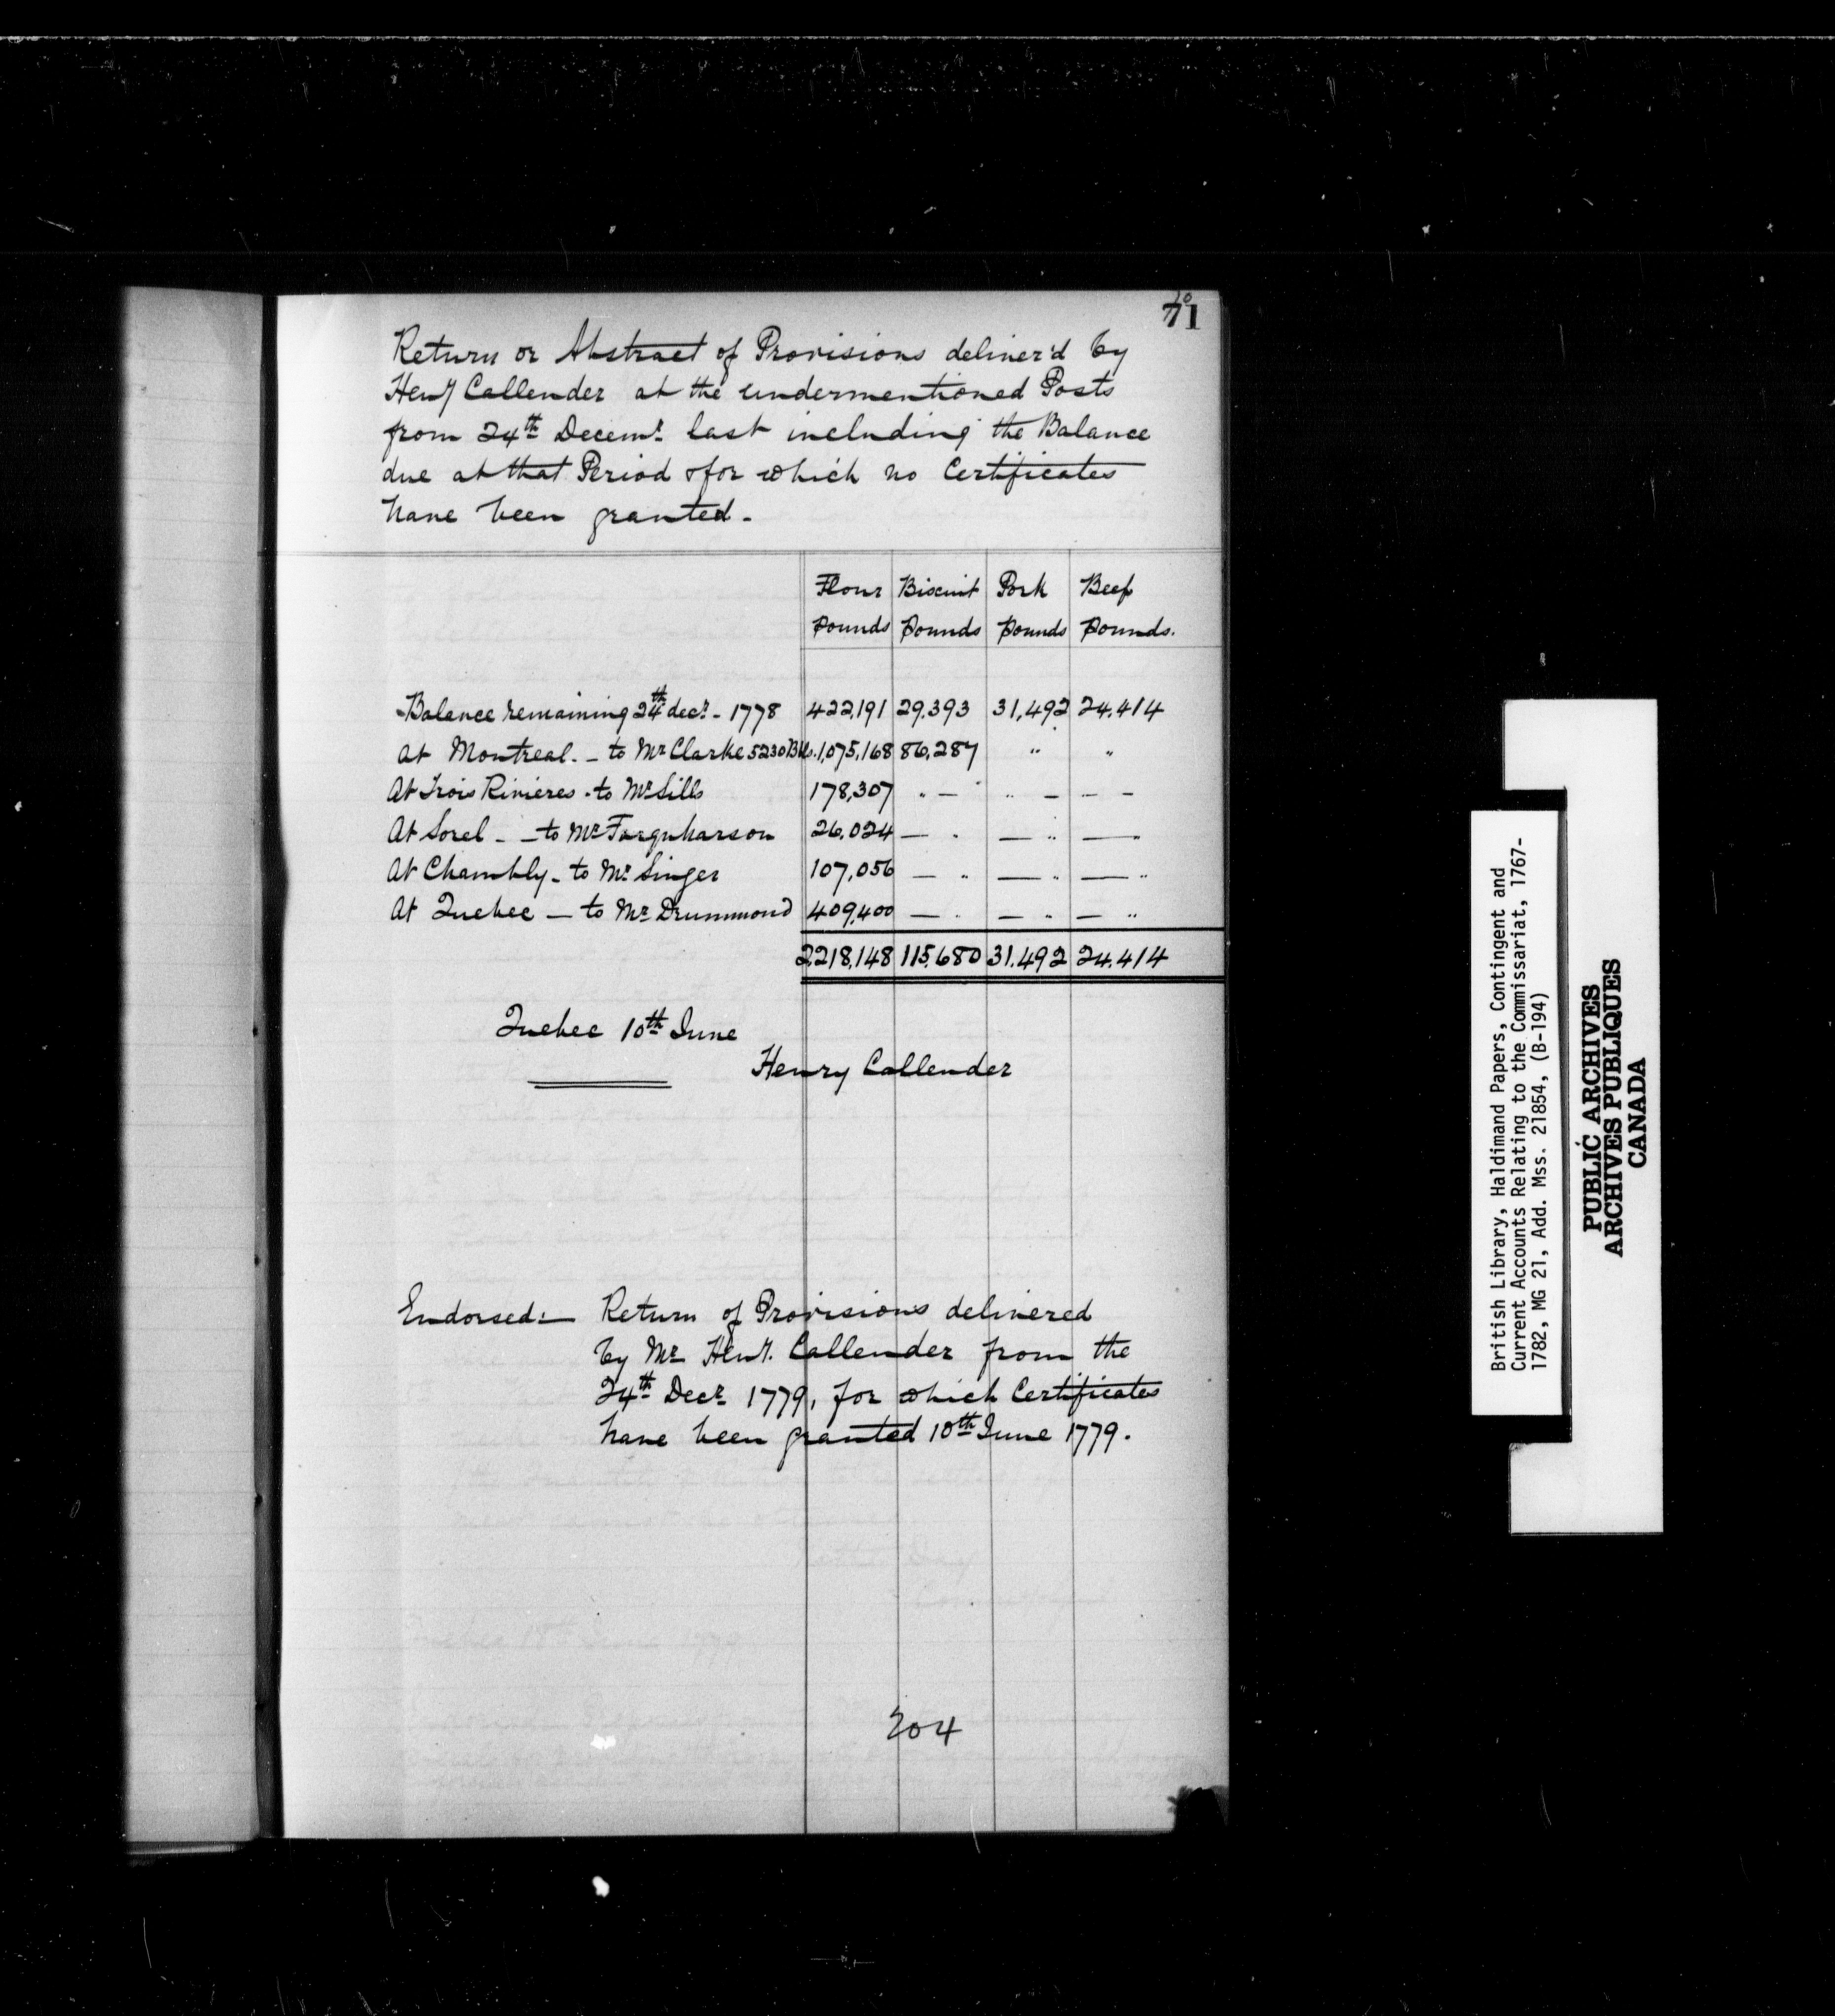 70
71
Return or Abstract of Provisions deliver'd by
Heny Callender at the undermentioned Posts
from 24th Decemr last including the Balance
due at that Period & for which no Certificates
have been granted.
Flour Biscuit Pork Beef
pounds pounds pounds pounds.
Balance remaining 24th decr - 1778 422,191 29,393 31,492 24,414
At Montreal. - to Mr Clarke 5230 Bls. 1,075,168 86,287 " "
At Trois Rivieres - to Mr Sills 178,307 " — " " — — —
At Sorel - - to Mr Farquharson 26,024 — " — " — "
At Chambly - to Mr Singer 107,056 — " — " — "
At Quebec — to Mr Drummond 409,400 — " — " — "
2,218,148 115,680 31,492 24,414
Quebec 10th June
Henry Callender
Endorsed:— Return of Provisions delivered
by Mr Heny. Callender from the
24th Decr 1779, for which Certificates
have been granted 10th June 1779.
204
British Library, Haldimand Papers, Contingent and
Current Accounts Relating to the Commissariat, 1767-
1782, MG 21, Add. Mss. 21854, (B-194)
PUBLIC ARCHIVES
ARCHIVES PUBLIQUES
CANADA